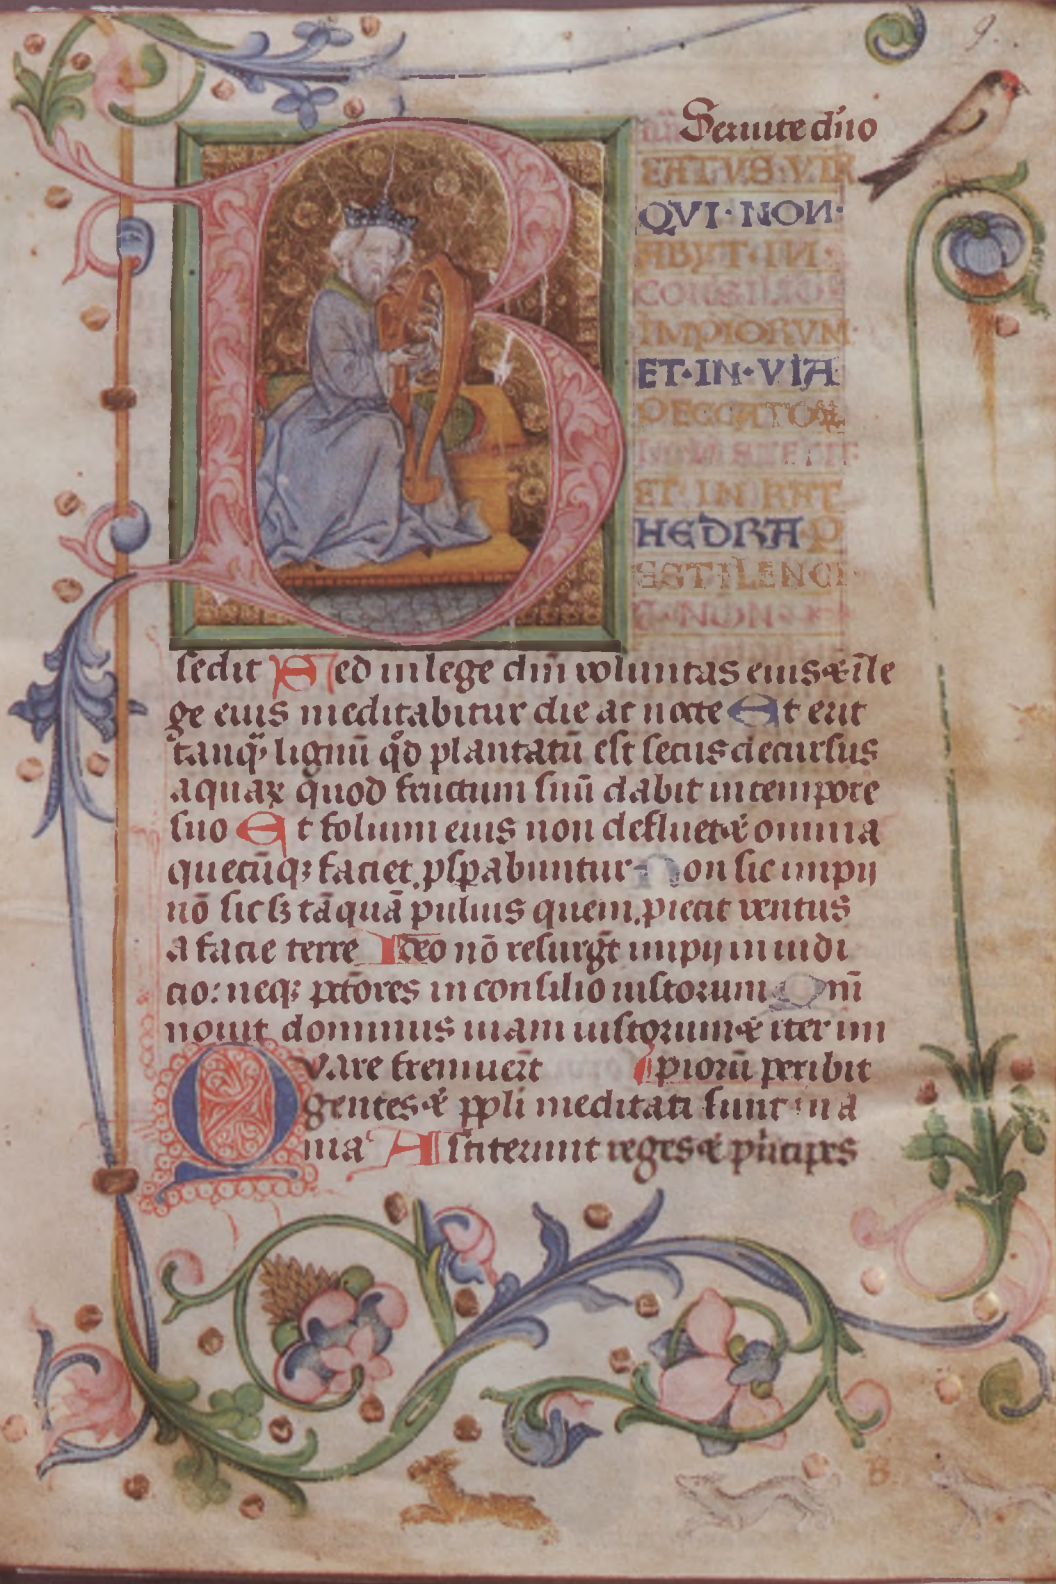 9.
Seruite dño
BEATVS·VIR
QVI·NON·
ABYT·IN·
CONSILIO
IMPIORVM·
ET·IN·VIA
PECCATOꝜ
NON STETIT
ET·IN KAT
HEDRA P
ESTILENCI
E·NON·
sedit Sed in lege dñi voluntas eius ⁊ ĩ le
ge eius meditabitur die ac nocte Et erit
tanqȝ lignũ qd̾ plantatũ est secus decursus
aquaꝝ quod fructum suũ dabit in tempore
suo Et folium eius non defluet ⁊ omnia
quecũqȝ faciet ꝓsꝑabuntur Non sic impij
nõ sic sȝ tãquã puluis quem ꝓiecit ventus
a facie terre Ideo nõ resurgũt impij in iudi
cio: neqȝ pctõres in consilio iustorum Qnĩ
nouit dominus uiam iustorum ⁊ iter im
Qvare fremuer̃t piorũ peribit
gentes ⁊ ppl̃i meditati sunt in a
nia Astiterunt reges ⁊ pñcipes
B.